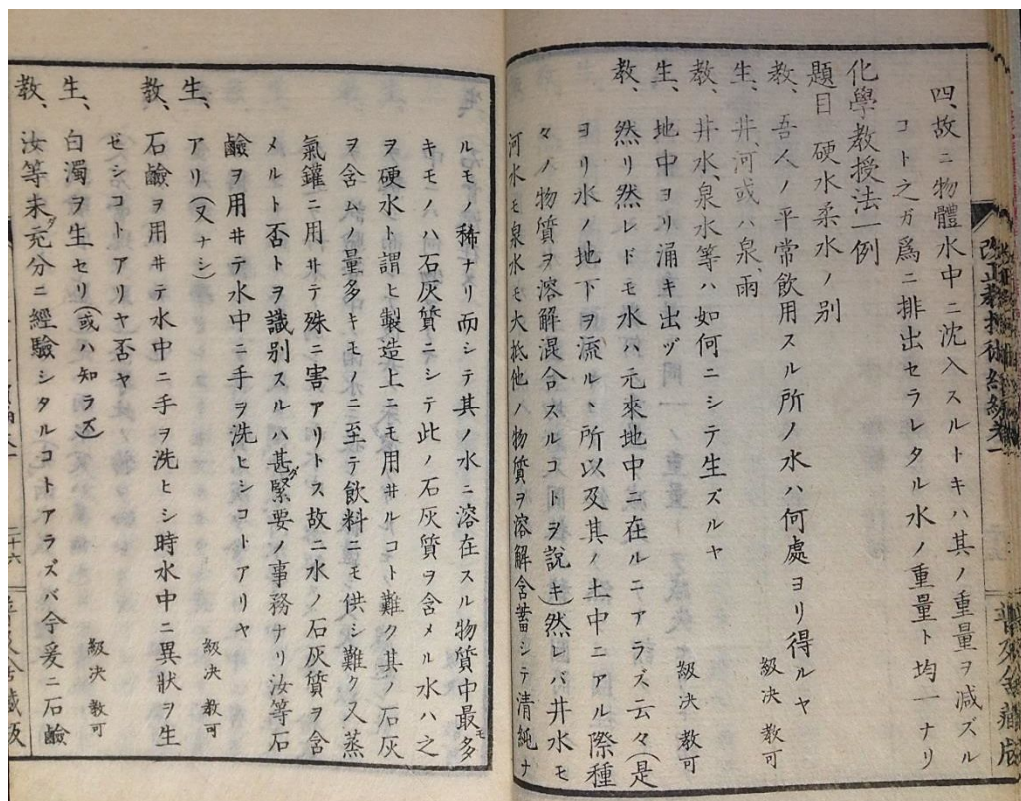 四、故ニ物體水中ニ沈入スルトキハ其ノ重量ヲ减ズル
コト之ガ爲ニ排出セラレタル水ノ重量ト均一ナリ
化學教授法一例
題目 硬水柔水ノ別
教、吾人ノ平常飲用スル所ノ水ハ何處ヨリ得ルヤ
生、井、河或ハ泉、雨 級决 教可
教、井水、泉水等ハ如何ニシテ生ズルヤ
生、地中ヨリ涌キ出ヅ 級决 教可
教、然リ然レドモ水ハ元來地中ニ在ルニアラズ云々(是
ヨリ水ノ地下ヲ流ルヽ所以及其ノ土中ニアル際種
々ノ物質ヲ溶解混合スルコトヲ說キ)然レバ井水モ
河水モ泉水モ大抵他ノ物質ヲ溶解含蓄シテ清純ナ
ルモノ稀ナリ而シテ其ノ水ニ溶在スル物質中最モ多
キモノハ石灰質ニシテ此ノ石灰質ヲ含メル水ハ之
ヲ硬水ト謂ヒ製造上ニモ用井ルコト難ク其ノ石灰
ヲ含ムノ量多キモノニ至テ飲料ニモ供シ難ク又蒸
氣鑵ニ用井テ殊ニ害アリトス故ニ水ノ石灰質ヲ含
メルト否トヲ識別スルハ甚ダ緊要ノ事務ナリ汝等石
鹼ヲ用井テ水中ニ手ヲ洗ヒシコトアリヤ
生、アリ(又ナシ) 級决 教可
教、石鹼ヲ用井テ水中ニ手ヲ洗ヒシ時水中ニ異狀ヲ生
ゼシコトアリヤ否ヤ
生、白濁ヲ生セリ(或ハ知ラズ) 級决 教可
教、汝等未ダ充分ニ經驗シタルコトアラズバ今爰ニ石鹼